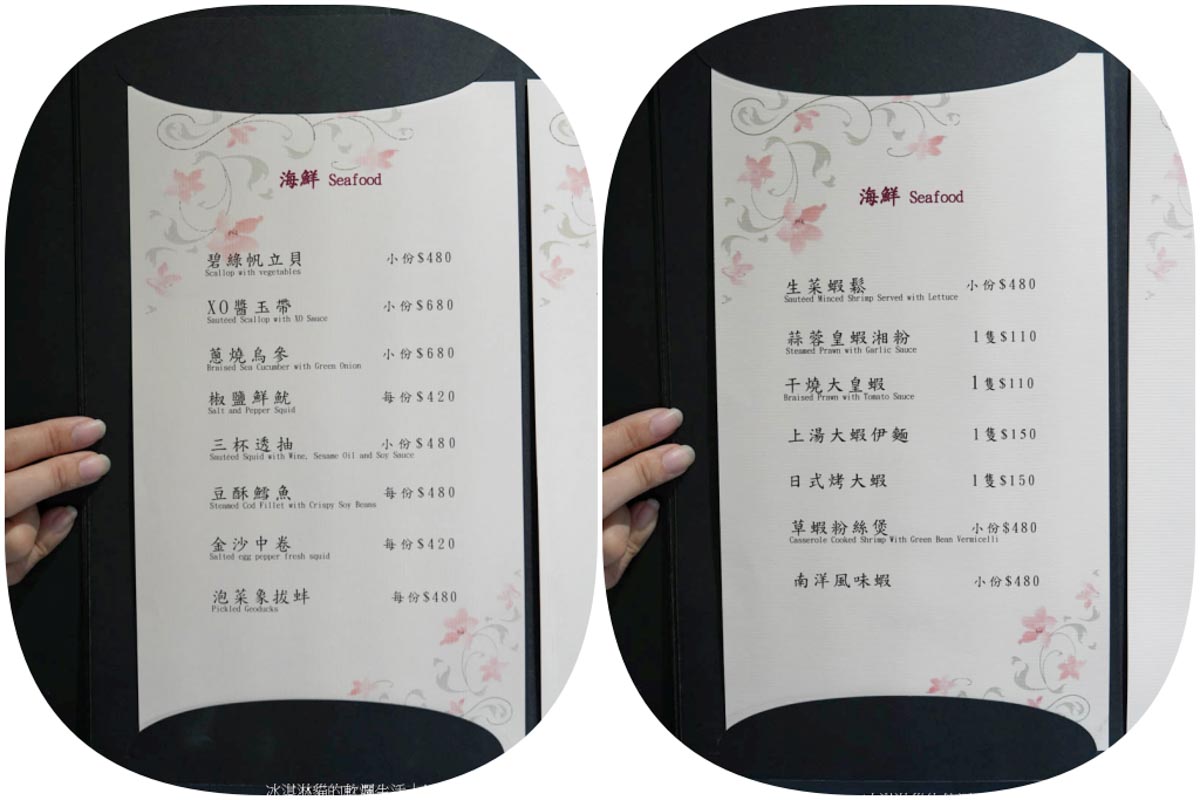 海鮮 Seafood
碧綠帆立貝 小份$480
Scallop with vegetables
XO醬玉帶 小份$680
Sautéed Scallop with XO Sauce
蔥燒烏參 小份$680
Braised Sea Cucumber with Green Onion
椒鹽鮮魷 每份$420
Salt and Pepper Squid
三杯透抽 小份$480
Sautéed Squid with Wine, Sesame Oil and Soy Sauce
豆酥鱈魚 每份$480
Steamed Cod Fillet with Crispy Soy Beans
金沙中卷 每份$420
Salted egg pepper fresh squid
泡菜象拔蚌 每份$480
Pickled Geoducks
冰淇淋貓的軟爛生活
海鮮 Seafood
生菜蝦鬆 小份$480
Sautéed Minced Shrimp Served with Lettuce
蒜蓉皇蝦湘粉 1隻$110
Steamed Prawn with Garlic Sauce
干燒大皇蝦 1隻$110
Braised Prawn with Tomato Sauce
上湯大蝦伊麵 1隻$150
日式烤大蝦 1隻$150
草蝦粉絲煲 小份$480
Casserole Cooked Shrimp With Green Bean Vermicelli
南洋風味蝦 小份$480